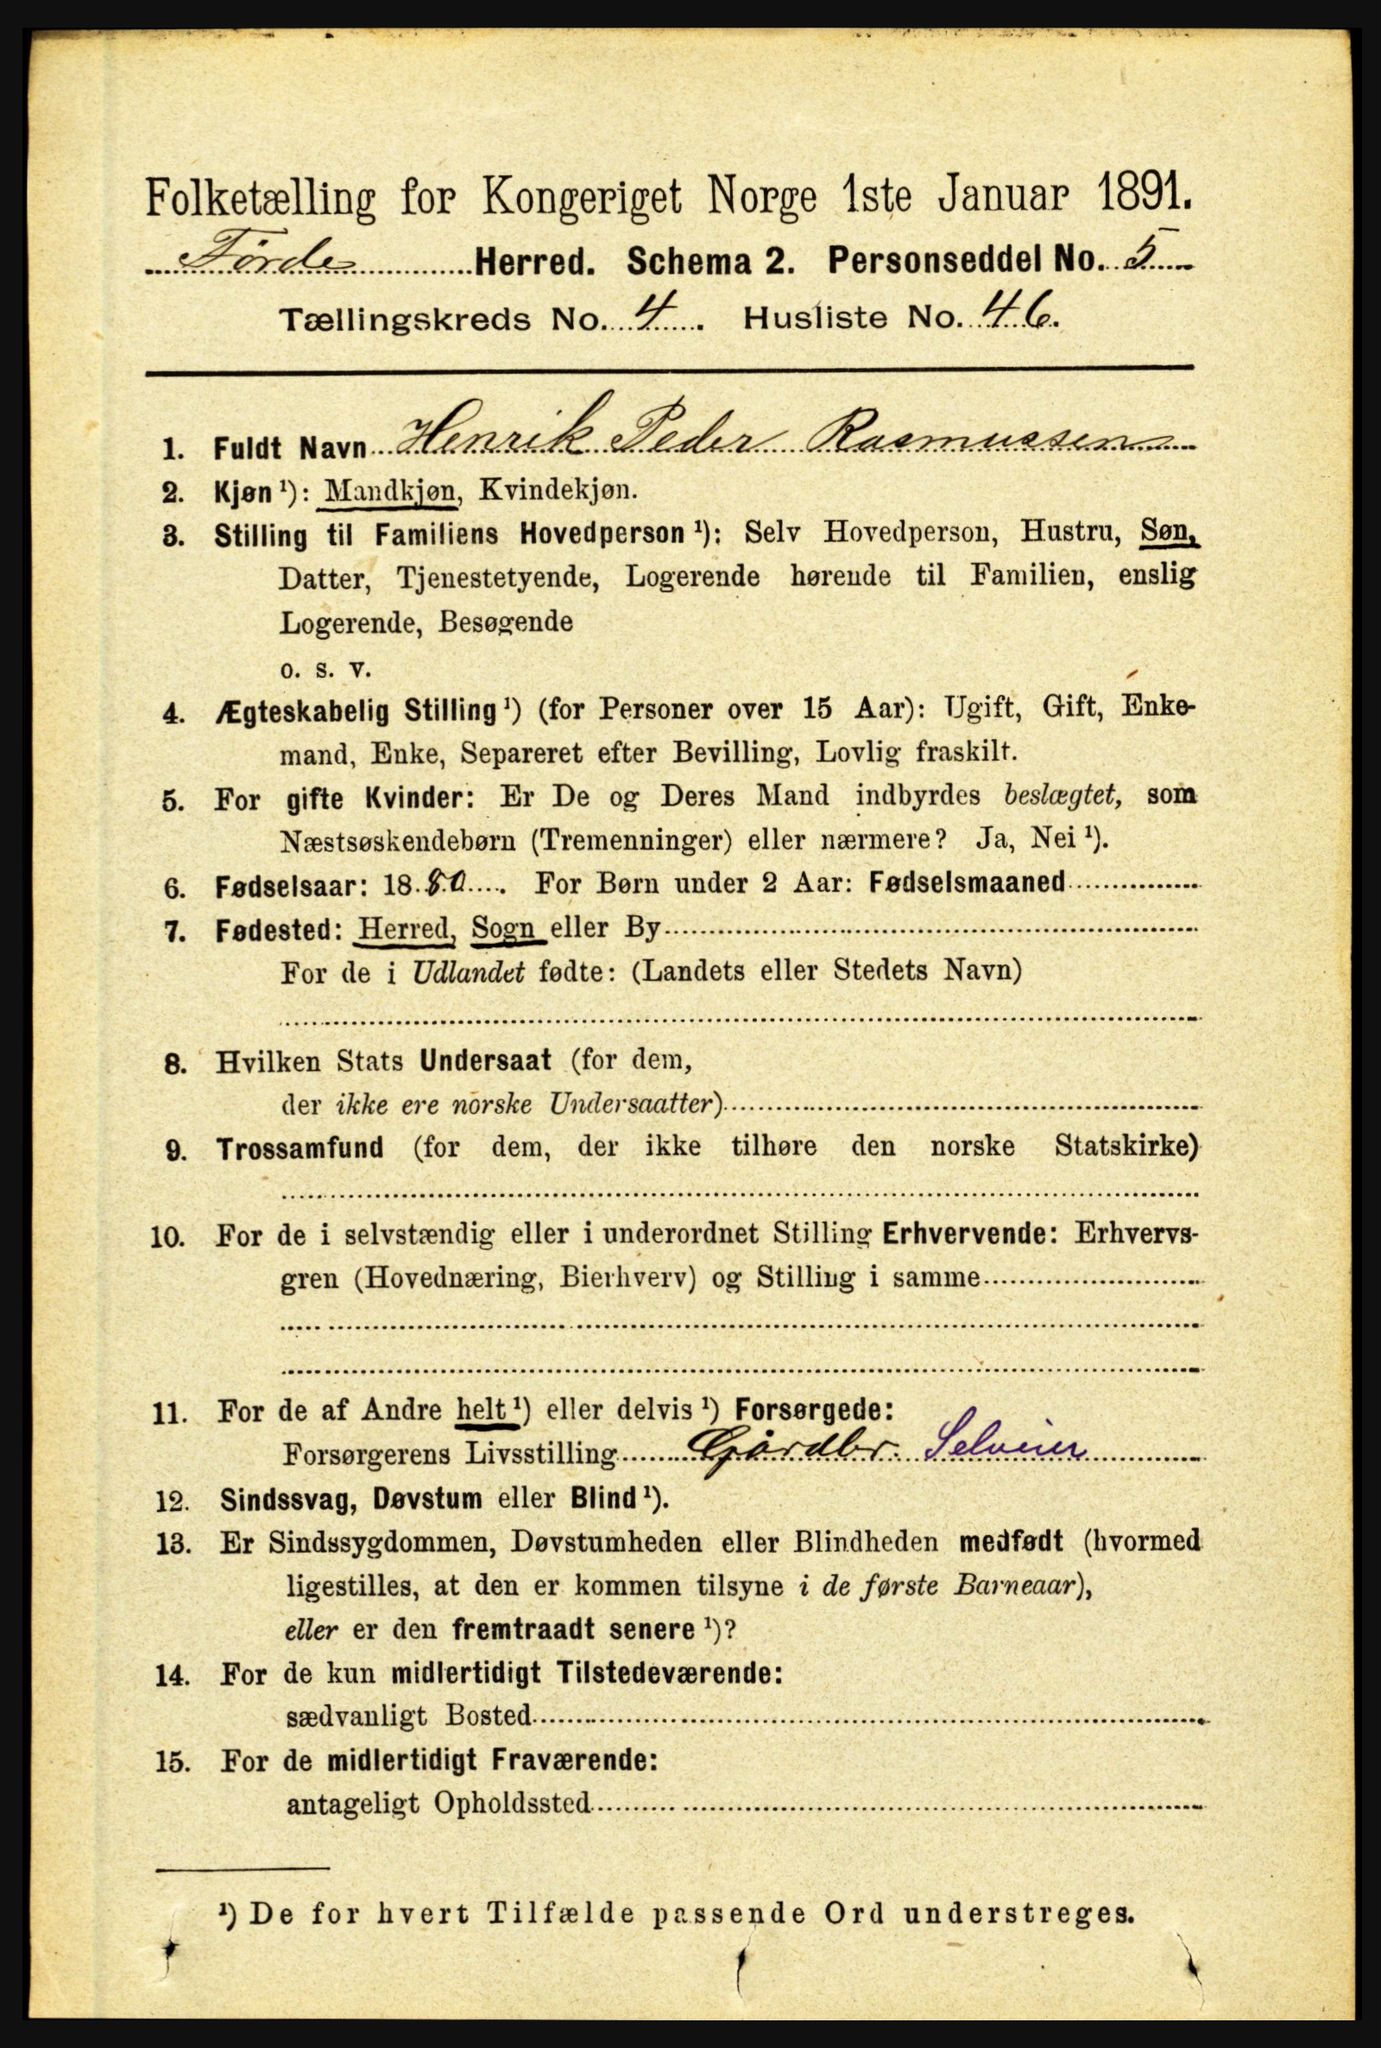 Folketælling for Kongeriget Norge 1ste Januar 1891.
Førde Herred. Schema 2. Personseddel No. 5
Tællingskreds No. 4. Husliste No. 46.
1. Fuldt Navn Henrik Peder Rasmussen
2. Kjøn ¹): Mandkjøn, Kvindekjøn.
3. Stilling til Familiens Hovedperson ¹): Selv Hovedperson, Hustru, Søn,
Datter, Tjenestetyende, Logerende hørende til Familien, enslig
Logerende, Besøgende
o. s. v.
4. Ægteskabelig Stilling ¹) (for Personer over 15 Aar): Ugift, Gift, Enke-
mand, Enke, Separeret efter Bevilling, Lovlig fraskilt.
5. For gifte Kvinder: Er De og Deres Mand indbyrdes beslægtet, som
Næstsøskendebørn (Tremenninger) eller nærmere? Ja, Nei ¹).
6. Fødselsaar: 1880. For Børn under 2 Aar: Fødselsmaaned
7. Fødested: Herred, Sogn eller By
For de i Udlandet fødte: (Landets eller Stedets Navn)
8. Hvilken Stats Undersaat (for dem,
der ikke ere norske Undersaatter)
9. Trossamfund (for dem, der ikke tilhøre den norske Statskirke)
10. For de i selvstændig eller i underordnet Stilling Erhvervende: Erhvervs-
gren (Hovednæring, Bierhverv) og Stilling i samme
11. For de af Andre helt ¹) eller delvis ¹) Forsørgede:
Forsørgerens Livsstilling Gårdbr. Selveier
12. Sindssvag, Døvstum eller Blind ¹).
13. Er Sindssygdommen, Døvstumheden eller Blindheden medfødt (hvormed
ligestilles, at den er kommen tilsyne i de første Barneaar),
eller er den fremtraadt senere ¹)?
14. For de kun midlertidigt Tilstedeværende:
sædvanligt Bosted
15. For de midlertidigt Fraværende:
antageligt Opholdssted
¹) De for hvert Tilfælde passende Ord understreges.